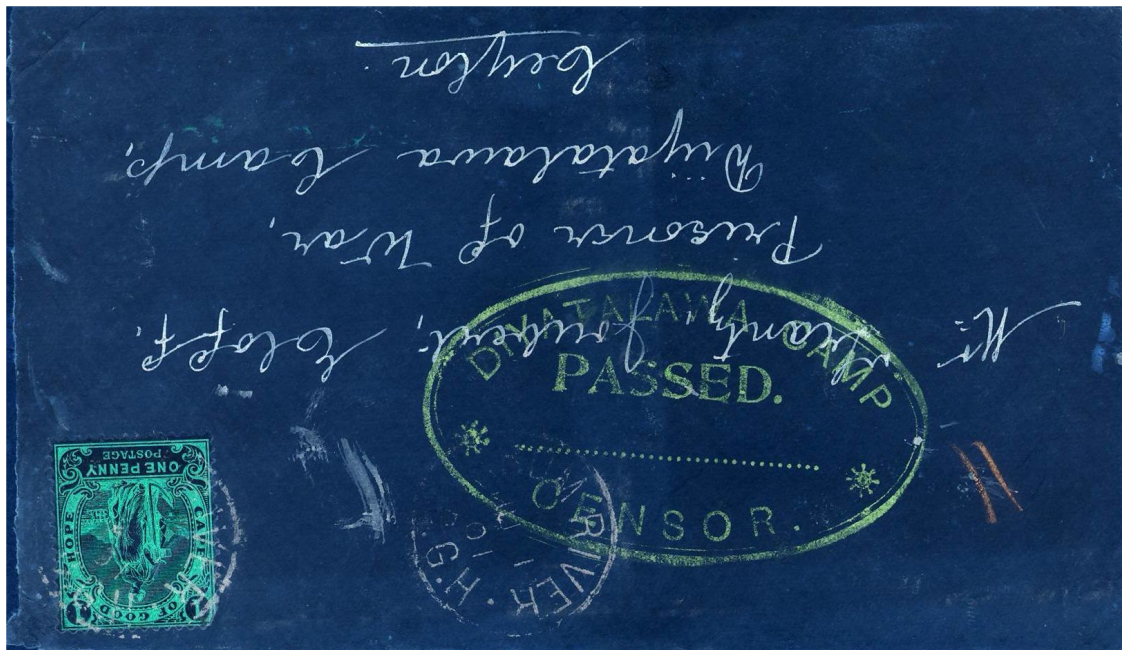 Mr Joubert, Eloff,
Prisoner of War,
Diyatalawa Camp,
Ceylon
DIYATALAWA CAMP
PASSED.
CENSOR.
RIVER. H.G.
1 CAPE OF GOOD HOPE 1
POSTAGE
ONE PENNY